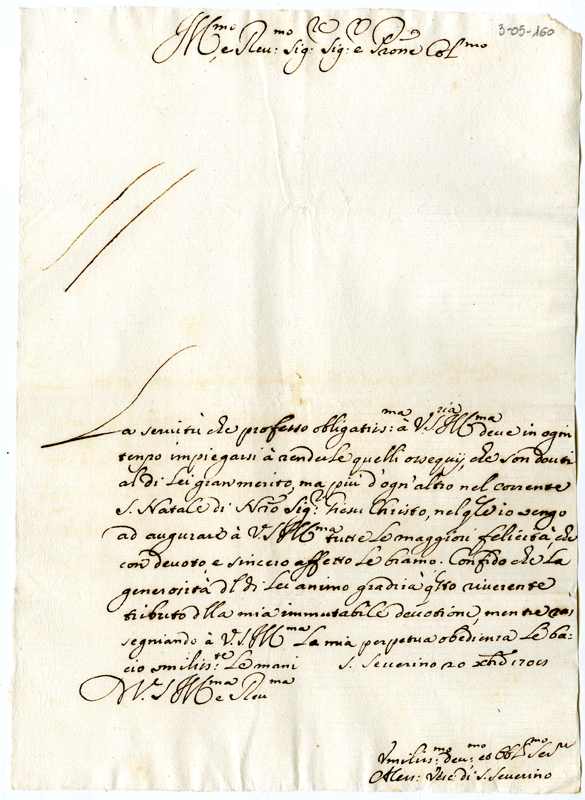 3-05-160
Ill.mo e Reu:mo Sig:re Sig:re e Prone Col.mo
La seruitù che professo obligatiss:ma à V.S. Ill.ma deue in ogni
tempo impiegarsi à renderle quelli ossequij, che son douti
al di Lei gran merito, ma più d'ogn'altro nel corrente
S. Natale di Nrõ Sig.re Giesu Christo, nel qle io uengo
ad augurare à V.S. Ill.ma tutte le maggiori felicità che
con deuoto, e sincero affetto le bramo. Confido che la
generosità dl di Lei animo gradirà qsto riuerente
tributo dlla mia immutabile deuotione, mentre ras
segniando à V.S. Ill.ma la mia perpetua obedienza le ba-
cio vmiliss:te le mani S. Seuerino 20 Xbre
Di V.S. Ill.ma e Reu.ma
Vmiliss:mo deu:mo et Obl.mo Ser.re
Aless: Vesc: di S. Seuerino